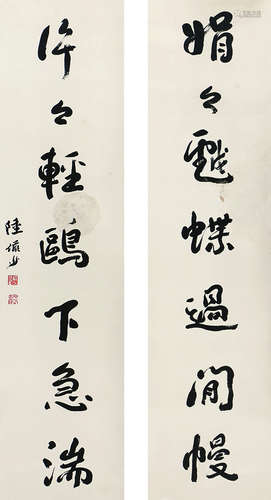 娟々戲蝶過閒幔
片々輕鷗下急湍
陸儼少